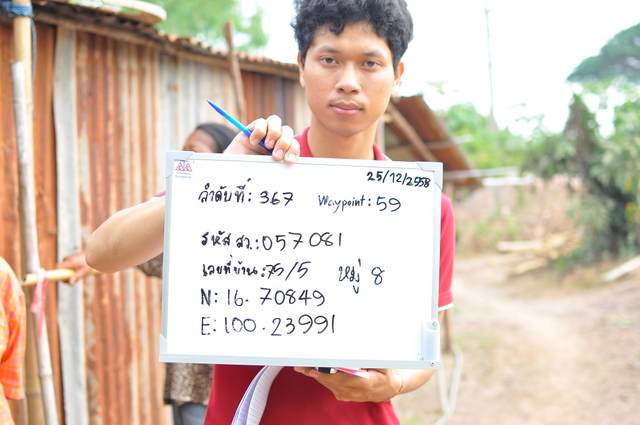 25/12/2558
ลำดับที่: 367 Waypoint: 59
รหัส สว.: 057081
เลขที่บ้าน: 75/5 หมู่ 8
N: 16.70849
E: 100.23991